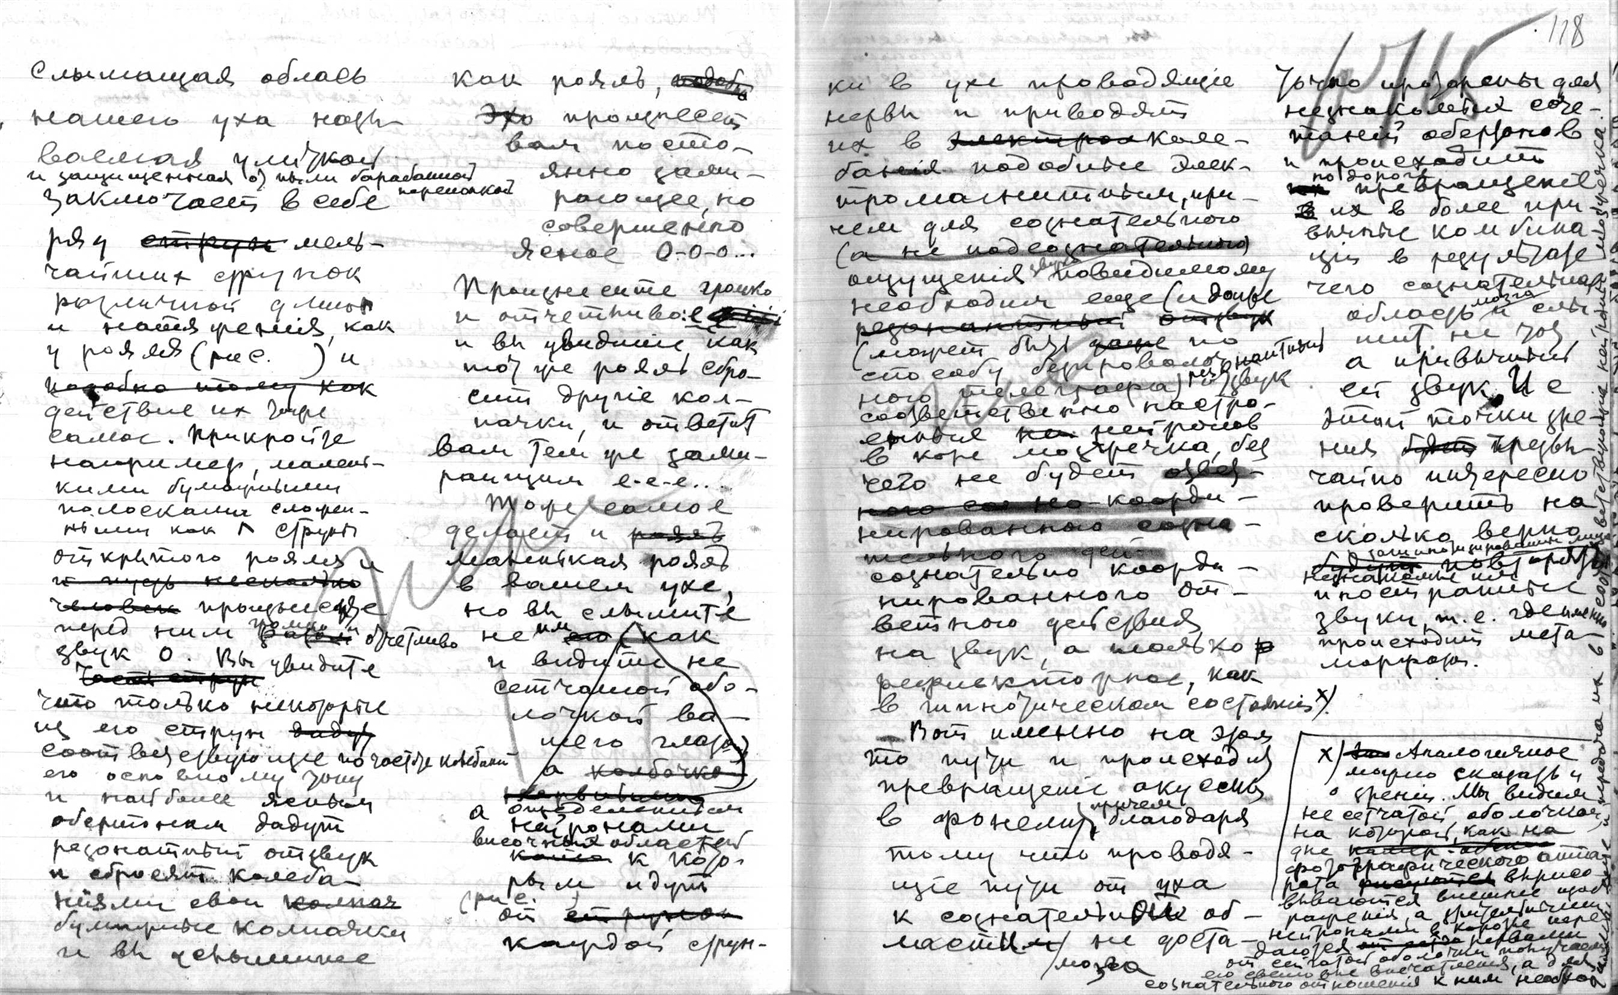 слышащая область
нашего уха назы-
ваемая улиткой
и защищенная от пыли барабанной
перепонкой
заключает в себе
ряд струн мель-
чайших струнок
различной длины
и натяжения, как
у рояля (рис. ) и
подобно тому как
действие их то же
самое. Прикройте
например, малень-
кими бумажными
полосками сложен-
ными как Λ струны
открытого рояля и
и пусть несколько
человек произнесите
перед ним громко и отчетливо
звук О. Вы увидите
Часть струн
что только некоторые
из его струн дадут
соответствующие по частоте колебаний
его основному тону
и наиболее ясным
обертонам дадут
резонатный отзвук
и сбросят колеба-
ниями свои колпач
бумажные колпачки
и вы услышите
как рояль, подобн
Эхо произнесет
вам посто-
янно зами-
рающее, но
совершенно
ясное О-о-о...
Произнесите громко
и отчетливо: е
и вы увидите как
тот же рояль сбро-
сит другие кол-
пачки, и ответит
вам тем же зами-
рающим е-е-е...
Тоже самое
делает и рояль
маленькая рояль
в вашем ухе,
но вы слышите
не им его, как
и видите не
сетчатой обо-
лочкой ва-
шего глаза,
а колбочко
а определенными
нейронами
височных областей
к кото-
рым идут
(рис. )
от струнок
каждой струн-
118
ки в ухе проводящие
нервы и приводят
их в электроколе-
бания подобные элек-
тромагнитным, при-
чем для сознательного
(а не подсознательного)
ощущения звука повидимому
необходим еще (и данные
резонантный отзвук
(может быть даже по
способу беспроволоч-
ного телеграфа) резонантный отзвук
соответственно настро-
енных на нейронов
в коре мозжечка, без
чего не будет
ного со но коорди-
нированного созна-
тельного дей-
сознательно коорди-
нированного от-
ветного действия
на звук, а только
рефлекторное, как
в гипнотическом состоянии х).
Вот именно на этом
то пути и происходит
превращение акустич
в фонему, причем благодаря
тому что проводя-
щие пути от уха
к сознательной об-
ласти мозга не доста-
точно проторены для
незнакомых соче-
таний обертонов
и происходит
по дороге превращение
их в более при
вычные комбина
ции в результате
чего сознательная
область мозга и слы-
шит не тот
а привычный
ей звук. И с
этой точки зре
ния было чрезвы-
чайно интересно
проверить на
сколько верно
незнакомые им
иностранные
звуки, т.е. где именно
происходит мета-
морфоза.
х) Аналогичное
можно сказать и
о зрении. Мы видим
не сетчатой оболочкой,
на которой, как на
дне камер-обскуры
фотографического аппа
рата рисуются вырисо
вываются внешние изоб
ражения, а зрительными
нейронами в коре
от сетчатой оболочки получает
его световые впечатления, а для
сознательного отношения к ним необхо-